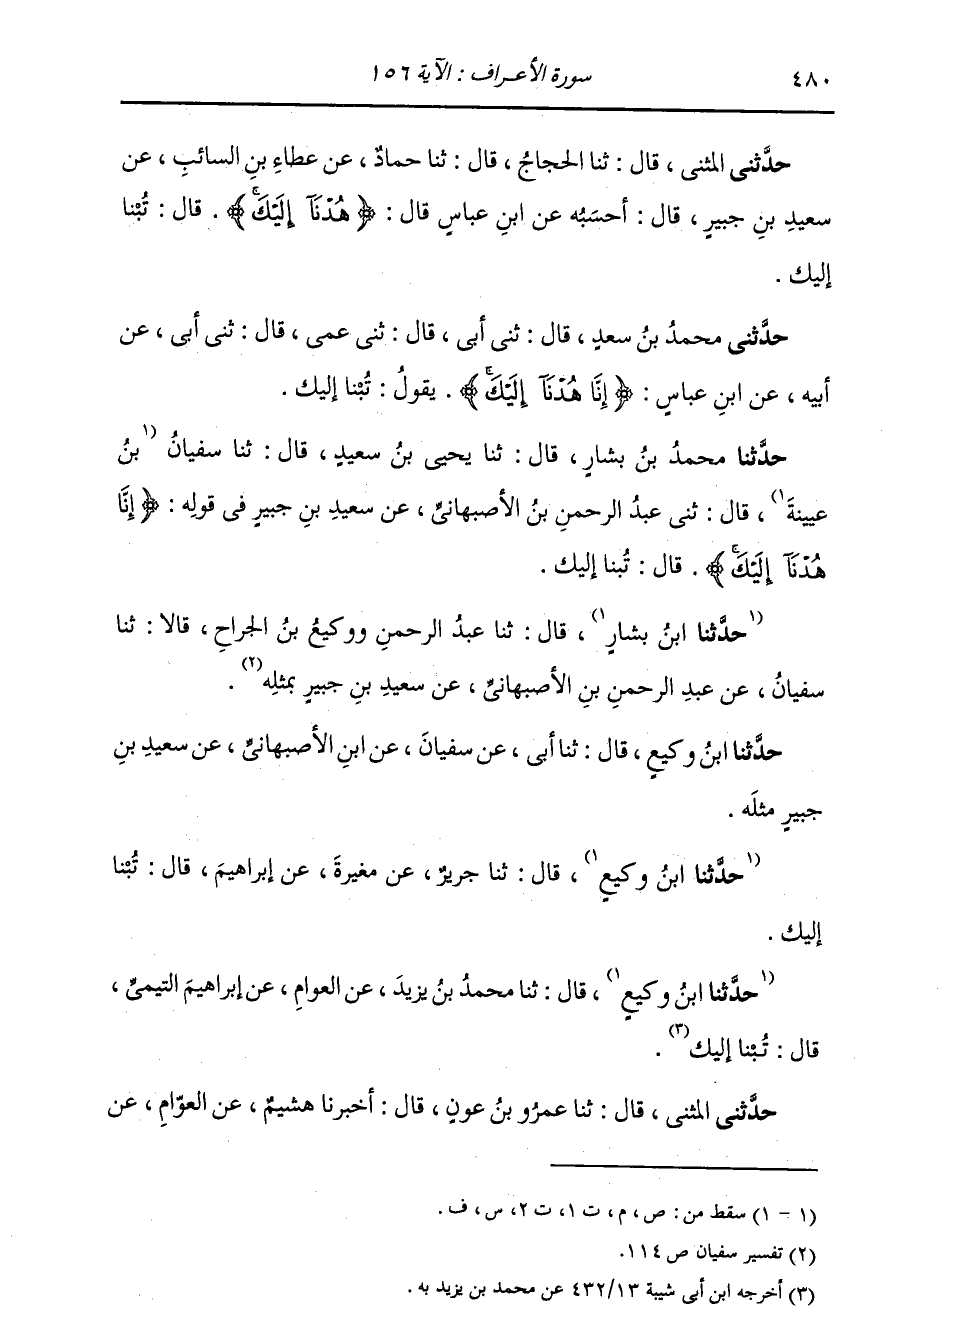 ٤٨٠ سورة الأعراف : الآية ١٥٦
حدَّثنى المثنى ، قال : ثنا الحجاجُ ، قال : ثنا حمادٌ ، عن عطاءِ بنِ السائبِ ، عن
سعيدِ بنِ جبيرٍ ، قال : أحسَبُه عن ابنِ عباسٍ قال : ﴿ هُدْنَآ إِلَيْكَۚ ﴾ . قال : تُبْنا
إليك .
حدَّثنى محمدُ بنُ سعدٍ ، قال : ثنى أبى ، قال : ثنى عمى ، قال : ثنى أبى ، عن
أبيه ، عن ابنِ عباسٍ : ﴿ إِنَّا هُدْنَآ إِلَيْكَۚ ﴾ . يقولُ : تُبْنا إليك .
حدَّثنا محمدُ بنُ بشارٍ ، قال : ثنا يحيى بنُ سعيدٍ ، قال : ثنا سفيانُ (١بنُ
عيينةَ١) ، قال : ثنى عبدُ الرحمنِ بنُ الأصبهانىِّ ، عن سعيدِ بنِ جبيرٍ فى قولِه : ﴿ إِنَّا
هُدْنَآ إِلَيْكَۚ ﴾ . قال : تُبنا إليك .
(١حدَّثنا ابنُ بشارٍ١) ، قال : ثنا عبدُ الرحمنِ ووكيعُ بنُ الجراحِ ، قالا : ثنا
سفيانُ ، عن عبدِ الرحمنِ بنِ الأصبهانىِّ ، عن سعيدِ بنِ جبيرٍ بمثلِه(٢) .
حدَّثنا ابنُ وكيعٍ ، قال : ثنا أبى ، عن سفيانَ ، عن ابنِ الأصبهانىِّ ، عن سعيدِ بنِ
جبيرٍ مثلَه .
(١حدَّثنا ابنُ وكيعٍ١) ، قال : ثنا جريرٌ ، عن مغيرةَ ، عن إبراهيمَ ، قال : تُبْنا
إليك .
(١حدَّثنا ابنُ وكيعٍ١) ، قال : ثنا محمدُ بنُ يزيدَ ، عن العوامِ ، عن إبراهيمَ التيمىِّ ،
قال : تُبْنا إليك(٣) .
حدَّثنى المثنى ، قال : ثنا عمرُو بنُ عونٍ ، قال : أخبرنا هشيمٌ ، عن العوّامِ ، عن
(١ - ١) سقط من : ص ، م ، ت ١، ت ٢، س ، ف .
(٢) تفسير سفيان ص ١١٤.
(٣) أخرجه ابن أبى شيبة ٤٣٢/١٣ عن محمد بن يزيد به .